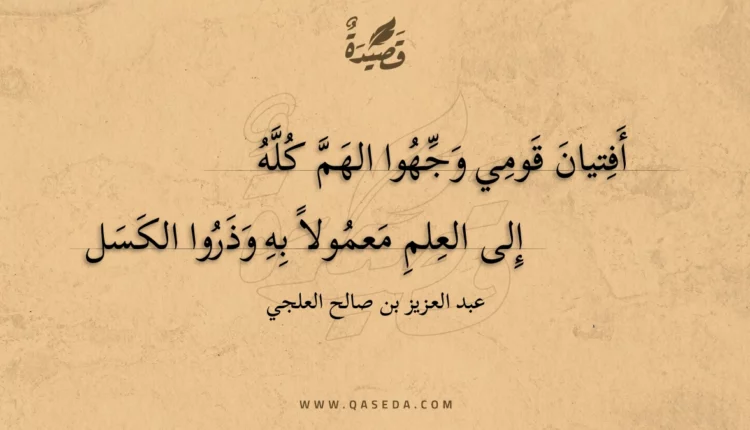 قَصِيْدَةٌ
أَفِتيانَ قَومِي وَجِّهُوا الهَمَّ كُلَّهُ
إِلى العِلمِ مَعمُولاً بِهِ وَذَرُوا الكَسَل
عبد العزيز بن صالح العلجي
WWW.QASEDA.COM